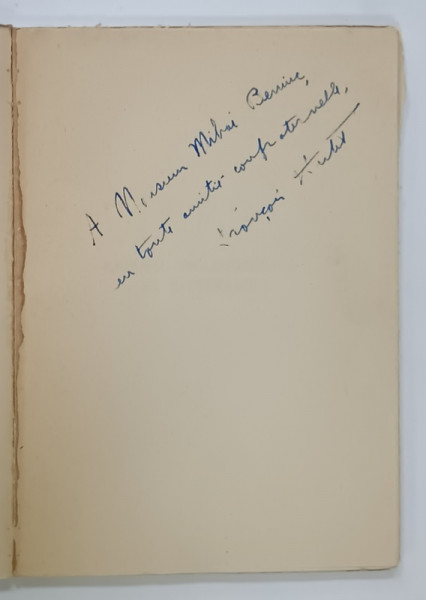 A Monsieur Mihai Beniuc,
en toute amitié confraternelle,
François